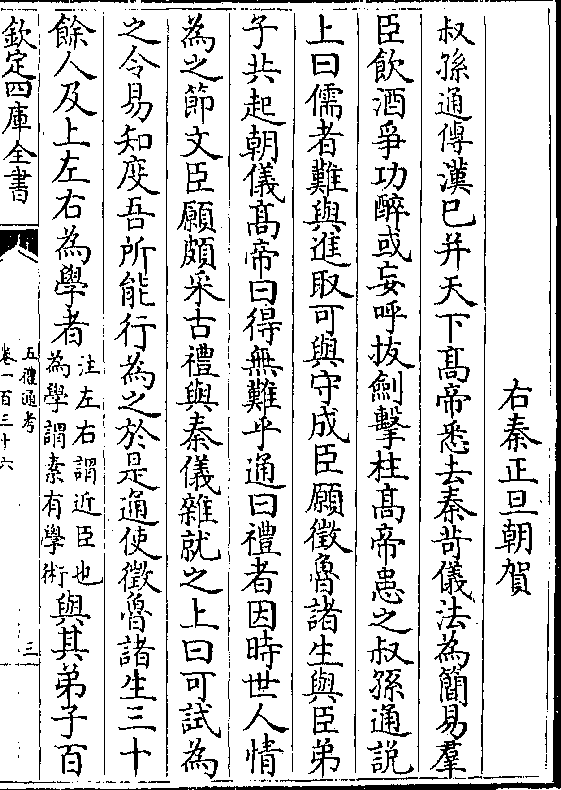 右秦正旦朝賀
叔孫通傳漢已并天下髙帝悉去秦苛儀法為簡易羣
臣飲酒爭功醉或妄呼拔劍擊柱髙帝患之叔孫通說
上曰儒者難與進取可與守成臣願徵魯諸生與臣弟
子共起朝儀髙帝曰得無難乎通曰禮者因時世人情
為之節文臣願頗采古禮與秦儀雜就之上曰可試為
之令易知度吾所能行為之於是通使徵魯諸生三十
餘人及上左右為學者注左右謂近臣也為學謂素有學術與其弟子百
欽定四庫全書
五禮通考
卷一百三十六
三